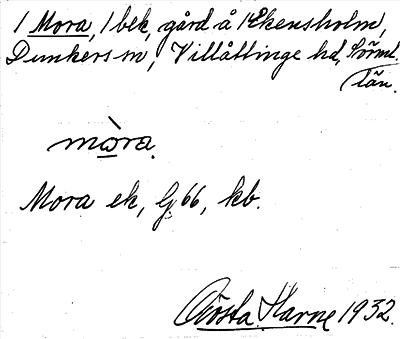 1 Mora, 1 bek, gård å Ekensholm,
Dunkers sn, Villåttinge hd, Sörml.
län.
mɷ̀ra.
Mora ek, G 66, kb.
Gösta Harne 1932.